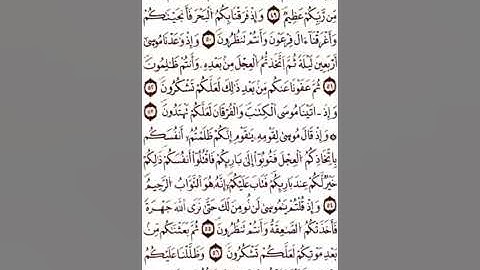 مِّن رَّبِّكُمْ عَظِيمٌ ٤٩ وَإِذْ فَرَقْنَا بِكُمُ الْبَحْرَ فَأَنجَيْنَاكُمْ
وَأَغْرَقْنَا ءَالَ فِرْعَوْنَ وَأَنتُمْ تَنظُرُونَ ٥٠ وَإِذْ وَٰعَدْنَا مُوسَىٰ
أَرْبَعِينَ لَيْلَةً ثُمَّ اَتَّخَذتُّمُ الْعِجْلَ مِنۢ بَعْدِهِۦ وَأَنتُمْ ظَٰلِمُونَ
٥١ ثُمَّ عَفَوْنَا عَنكُم مِّنۢ بَعْدِ ذَٰلِكَ لَعَلَّكُمْ تَشْكُرُونَ ٥٢
وَإِذَ ـاتَيْنَا مُوسَى الْكِتَٰبَ وَالْفُرْقَانَ لَعَلَّكُمْ تَهْتَدُونَ ٥٣
۞ وَإِذْ قَالَ مُوسَىٰ لِقَوْمِهِۦ يَٰقَوْمِ إِنَّكُمْ ظَلَمْتُمُۥ أَنفُسَكُم
بِاتِّخَاذِكُمُ الْعِجْلَ فَتُوبُوٓا۟ إِلَىٰ بَارِئِكُمْ فَاقْتُلُوٓا۟ أَنفُسَكُمْ ذَٰلِكُمْ
خَيْرٌ لَّكُمْ عِندَ بَارِئِكُمْ فَتَابَ عَلَيْكُمُۥ إِنَّهُۥ هُوَ التَّوَّابُ الرَّحِيمُ
٥٤ وَإِذْ قُلْتُمْ يَٰمُوسَىٰ لَن نُّومِنَ لَكَ حَتَّىٰ نَرَى اللَّهَ جَهْرَةً
فَأَخَذَتْكُمُ الصَّٰعِقَةُ وَأَنتُمْ تَنظُرُونَ ٥٥ ثُمَّ بَعَثْنَٰكُم مِّنۢ
بَعْدِ مَوْتِكُمْ لَعَلَّكُمْ تَشْكُرُونَ ٥٦ وَظَلَّلْنَا عَلَيْكُمُ